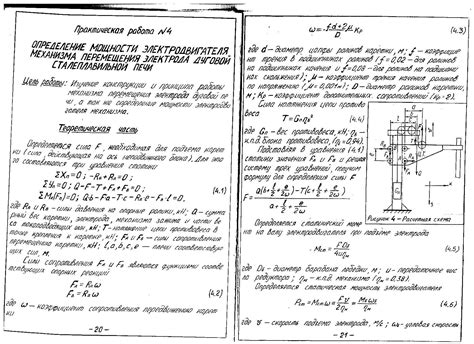 Практическая работа №4
ОПРЕДЕЛЕНИЕ МОЩНОСТИ ЭЛЕКТРОДВИГАТЕЛЯ
МЕХАНИЗМА ПЕРЕМЕЩЕНИЯ ЭЛЕКТРОДА ДУГОВОЙ
СТАЛЕПЛАВИЛЬНОЙ ПЕЧИ
Цель работы: Изучение конструкции и принципа работы
механизма перемещения электрода дуговой пе
чи, а также определение мощности электродви
гателя механизма.
Теоретическая часть
Определяется сила F, необходимая для подъема карет
ки (сила, действующая на оси неподвижного блока), для это
го составляются три уравнения статики
ΣX=0; -Rв+Rн=0;
ΣY=0; Q-F-T+Fв+Fн=0; (4.1)
где Rв и Rн - силы давления на опорные ролики, кН; Q - сумма
рный вес каретки, электрода, механизма зажима и части ве
са токоподводящих шин, кН; T - натяжение цепи противовеса в
точке крепления к каретке, кН; Fв и Fн - силы сопротивления
перемещению каретки, кН; - плечи соответствую
щих сил, м.
Силы сопротивления Fв и Fн являются функциями соотве
тствующих опорных реакций
Fв = Rв ω
Fн = Rн ω (4.2)
где ω - коэффициент сопротивления передвижению карет
ки
- 20 -
ω = (fd+2μ)/D Kр (4.3)
где d - диаметр цапфы роликов каретки, м; f - коэффицие
нт трения в подшипниках роликов (f=0,02 - для роликов
на подшипниках качения и f=0,08 для роликов на подшипни
ках скольжения); μ - коэффициент трения качения роликов
по направляющим (μ=0,001 м); D - диаметр роликов каретки,
м; Kр - коэффициент дополнительных сопротивлений
Сила натяжения цепи проти
вовеса
(4.4)
где Gп - вес противовеса, кН;
к.п.д. блока противовеса, (η=0,94).
Подставляя в уравнения (4.1)
значения Fв и Fн и решая
систему трех уравнений, получим
формулу для определения силы F
Рисунок 4 - Расчетная схема
Определяется статический моме
нт на валу электродвигателя при подъеме электрода
(4.5)
где Dб - диаметр барабана лебедки, м; u - передаточное чис
ло редуктора; ηм - к.п.д. механизма
Определяется статическая мощность электродвигателя
(4.6)
где v - скорость подъема электрода, м/с; - угловая скорость
- 21 -